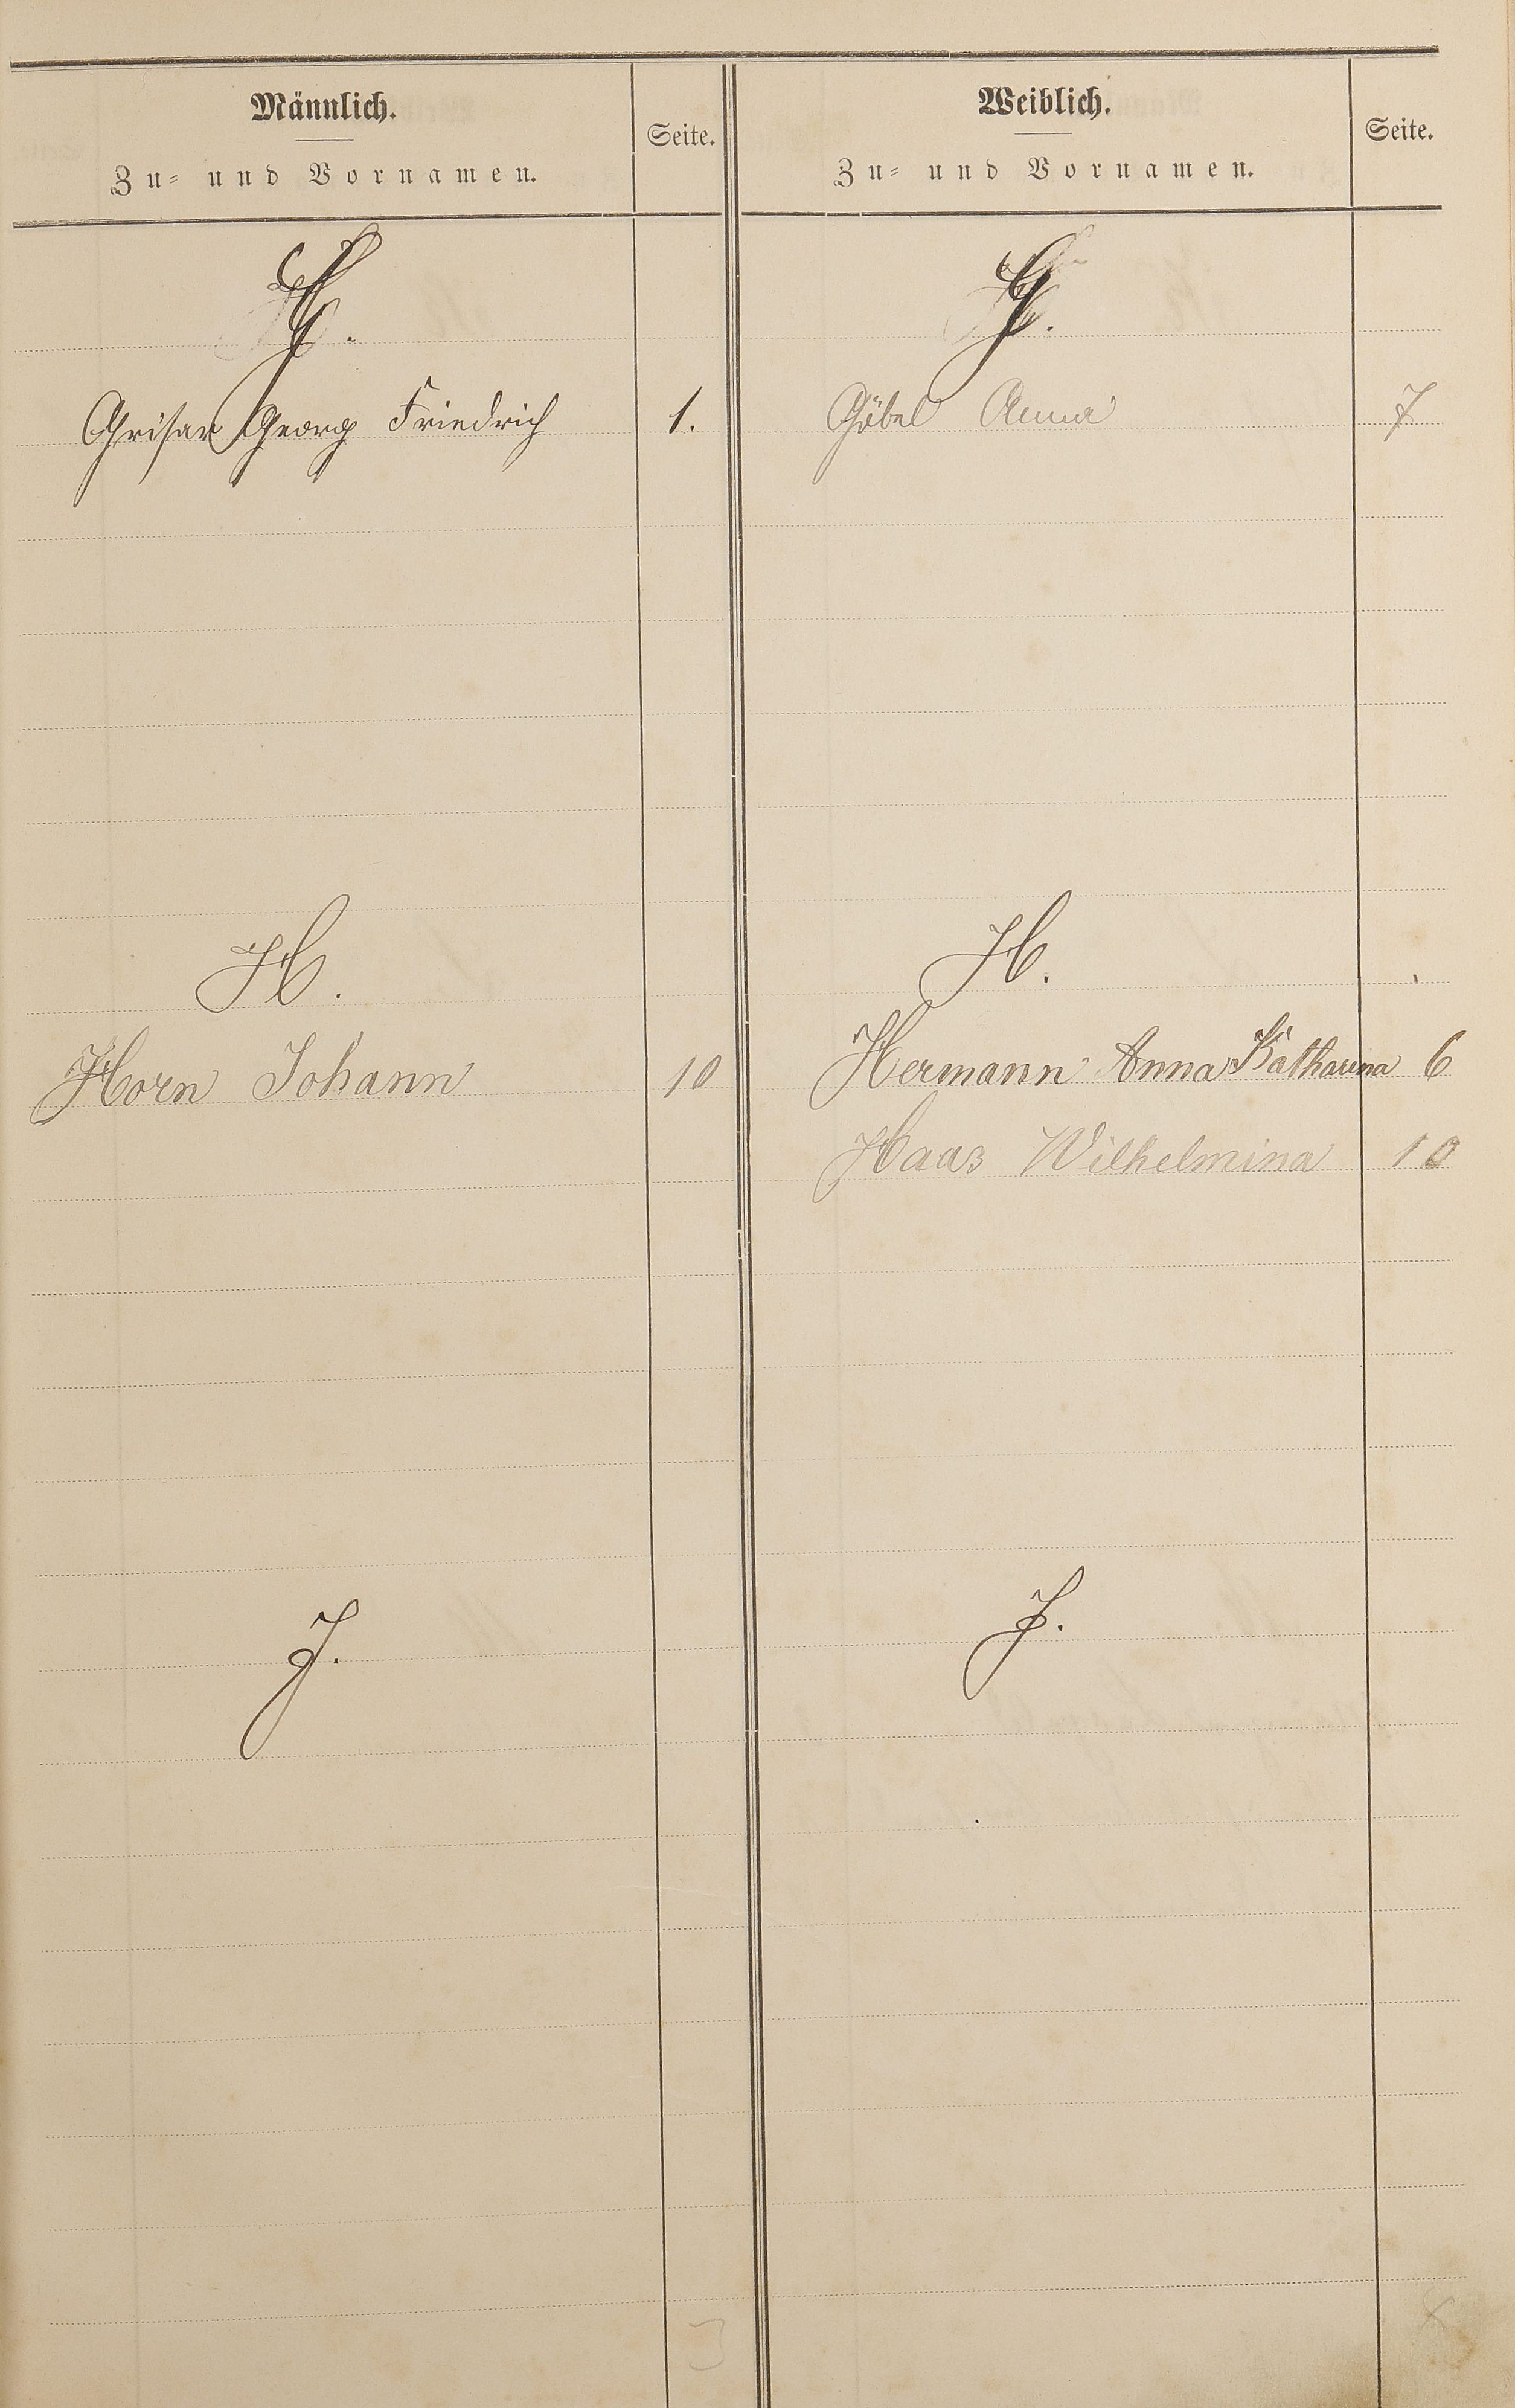 Männlich.
Zu- und Vornamen.
Seite.
Weiblich.
Zu- und Vornamen.
Seite.
G.
G.
Grisar Georg Friedrich 1.
Göbel Anna 7
H.
H.
Horn Johann 10
Hermann Anna Katharina 6
Haas Wilhelmina 10
J.
J.